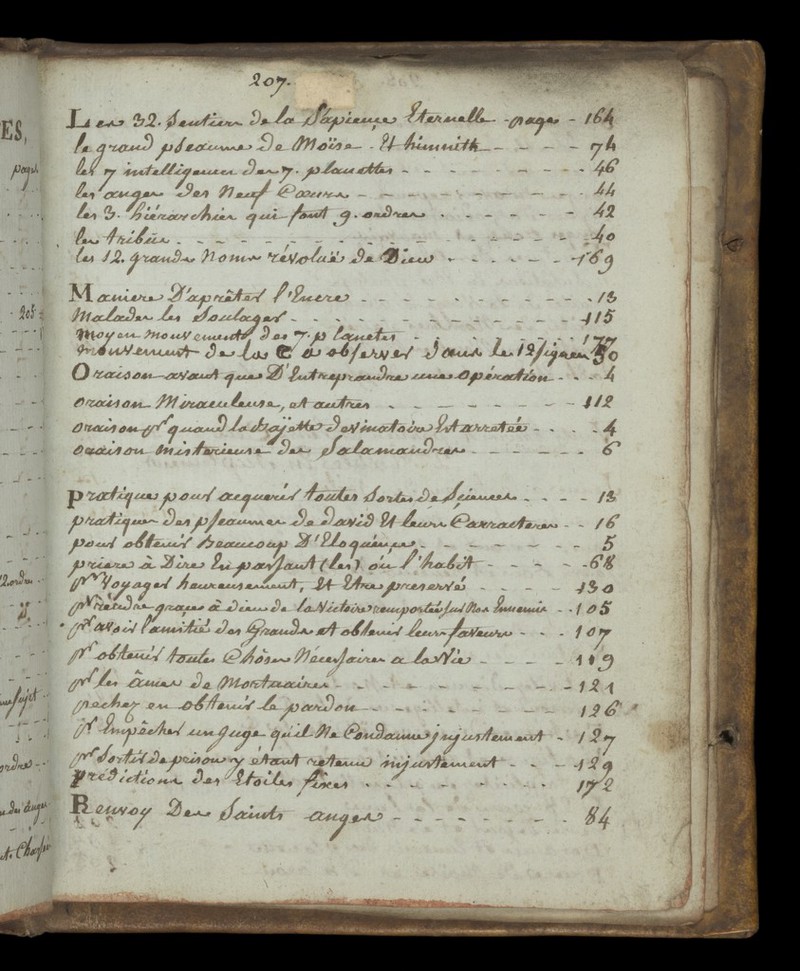 207.
Les 32. Sentiers de la Sapience Eternelle - page - 164
le grand pseaume de Moïse - Et himnith - - - - 74
les 7 intelligences des 7. planettes - - - - - - - 46
les anges des Neuf Coeurs - - - - - - - - - 44
les 3. hiérarchies qui font 9. ordres - - - - - - 42
les tribus - - - - - - - - - - - - - - - 40
les 12. grands Noms révolués de Dieu - - - - - - 169
Maniere D'aprêter l'Encre - - - - - - - - - - 13
Malades les Soulager - - - - - - - - - - - 115
Moyen mouvements des 7. planetes - - - - - - 177
mouvement de la C a observer dans les 12 signes 50
Oraison avant que D'Entreprandre une opération - - - 4
oraison Miraculeuse, et autres - - - - - - - - 112
oraison pr quand la Bajette devinatoire Est arretée - - - - 4
oraison misterieuse des Salamandres - - - - - - 6
pratiques pour acquerir toutes sortes de Sciences - - - - 13
pratiques des pseaumes de david Et leurs Carracteres - - 16
pour obtenir Beaucoup D'Eloquence - - - - - - 5
priere à Dire En passant (les) ou l'habit - - - - - 68
pr Voyager heureusement, Et Etre preservé - - - - - 130
pr rendre graces à Dieu de la Victoire remportée sur Nos Ennemis - - 105
pr avoir l'amitié des Grands et obtenir leurs faveurs - - - 107
pr obtenir toutes Chôses Nécessaires a la Vie - - - - 119
pr les âmes de - - - - - - - - 121
pechez en obtenir le pardon - - - - - - - 126
pr Empêcher un Juge qu'il Ne Condamne injustement - 127
pr Sortir de prison y étant retenu injustement - - - 129
prédictions des Etoiles fixes - - - - - - - - 172
Renvoy Des Saints anges - - - - - - - - 84
ES,
pages
205
ordre